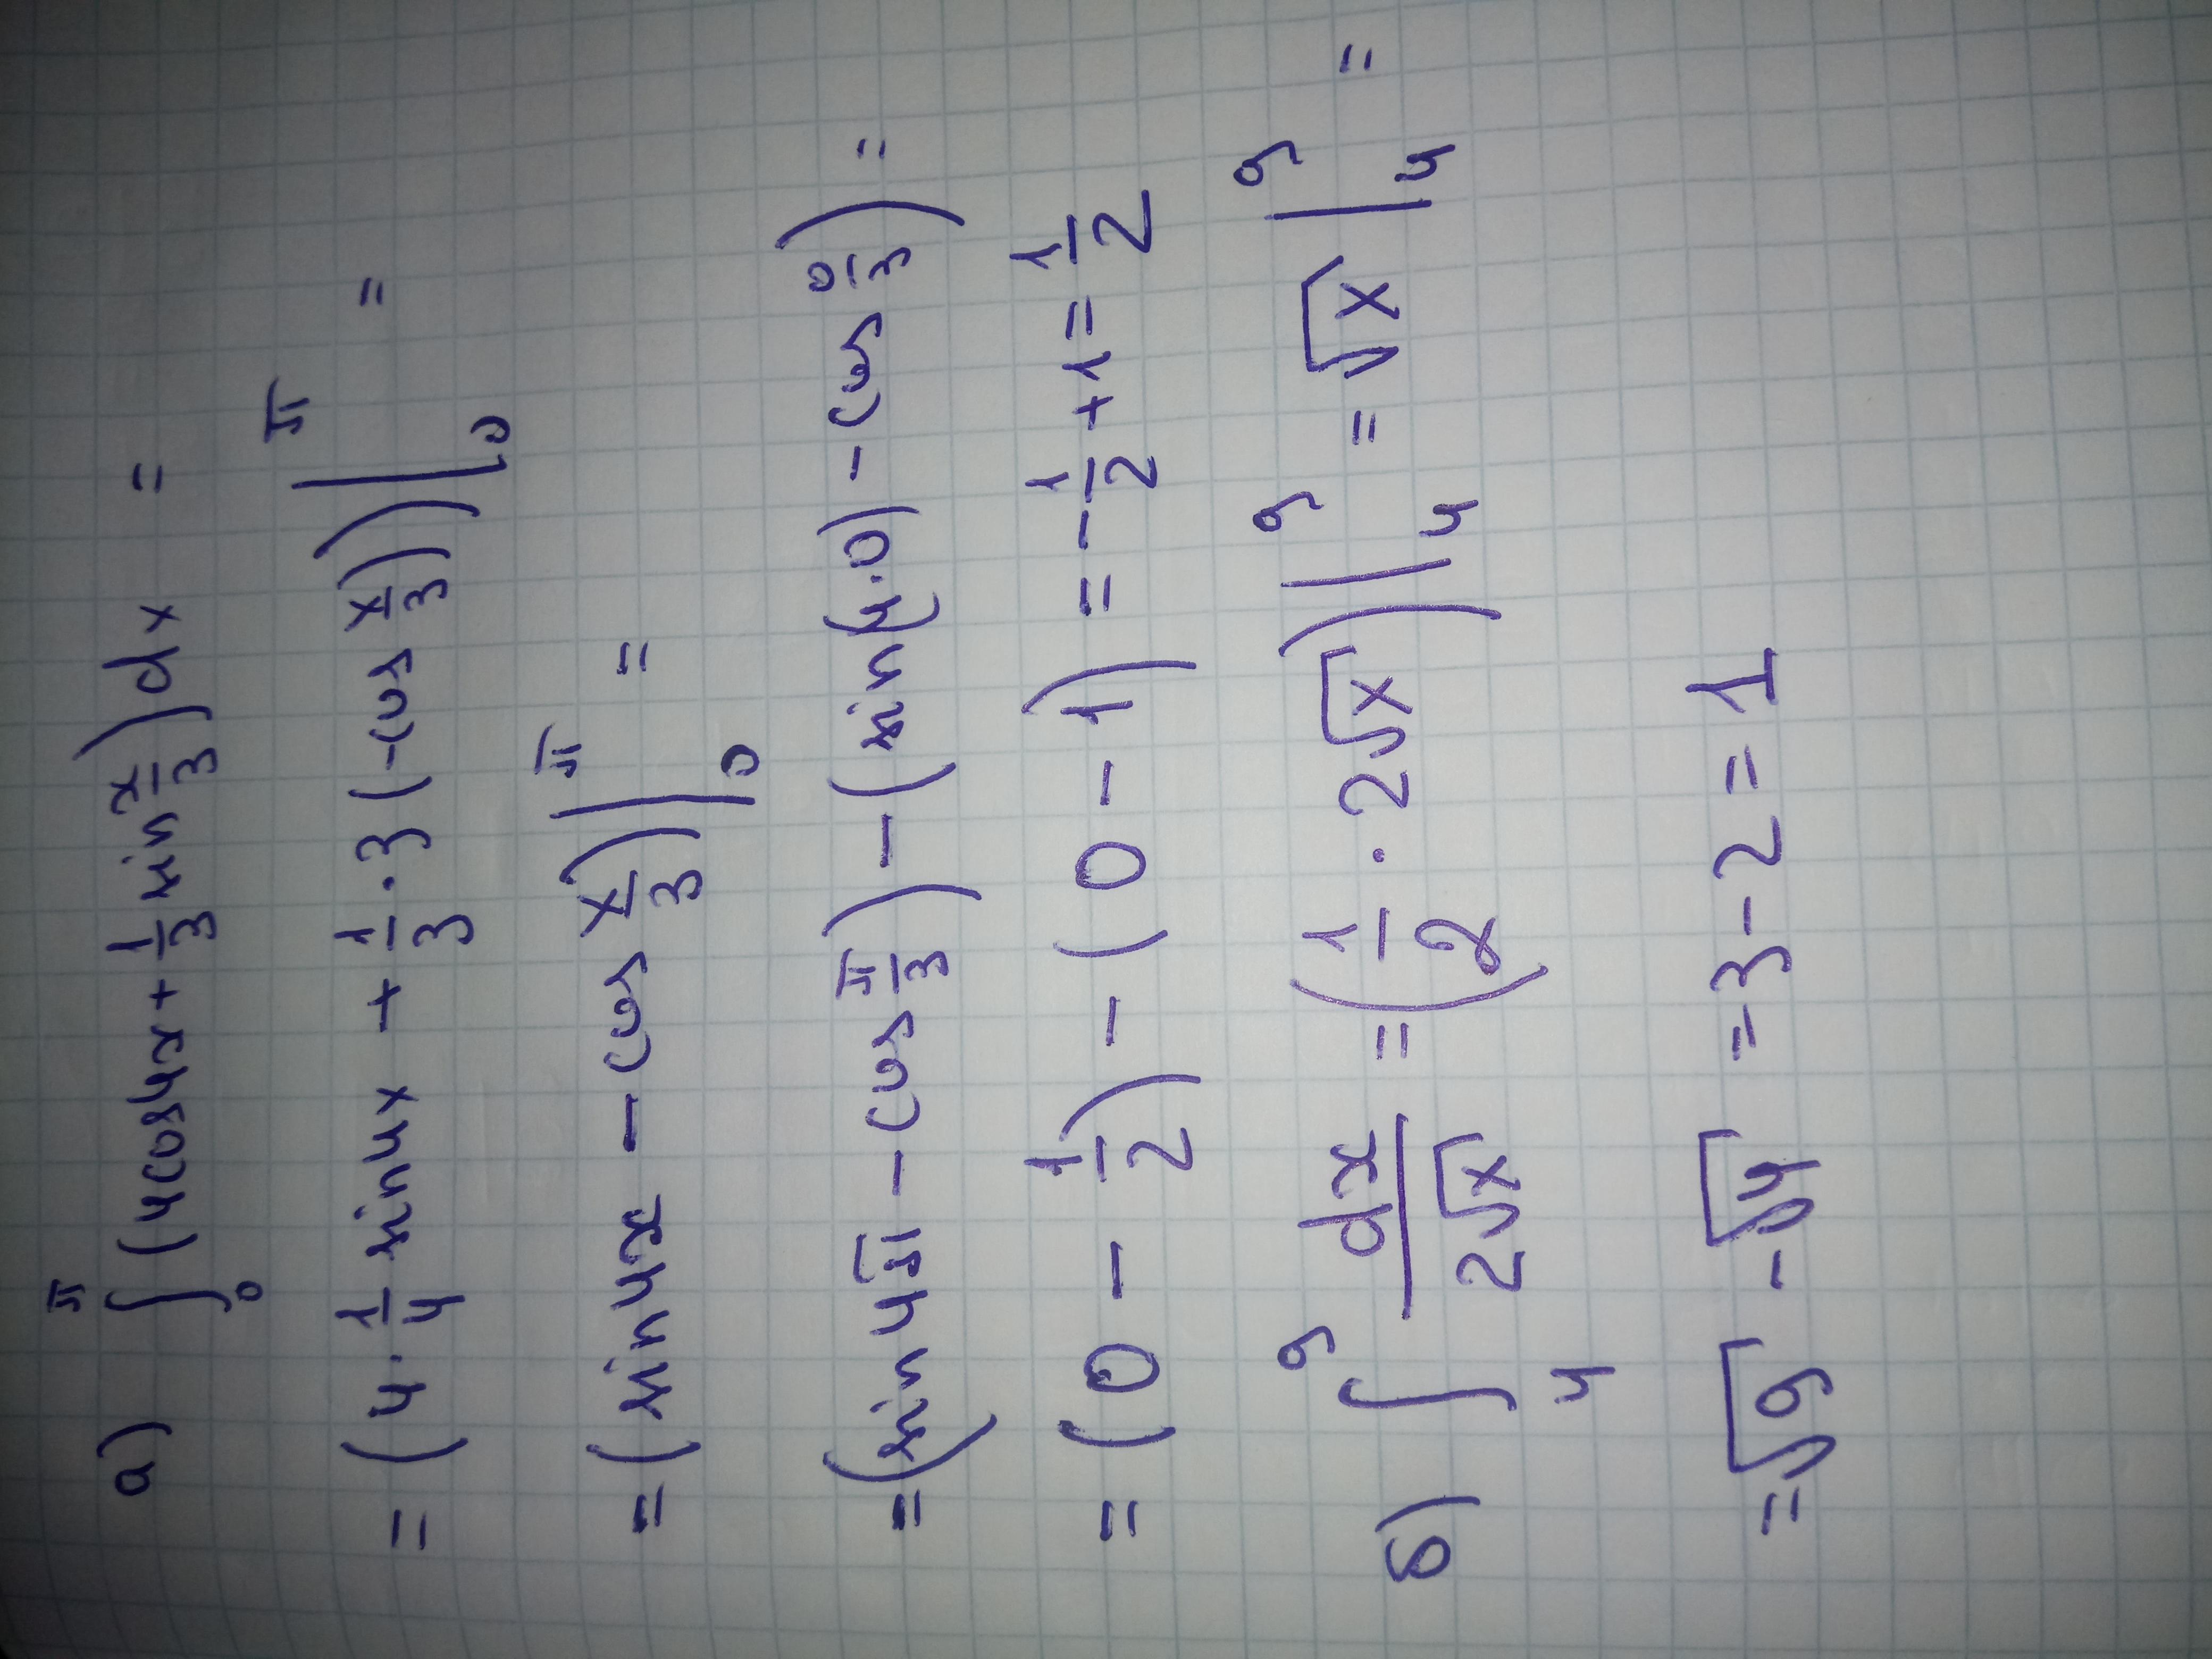 а) ∫₀^π (4cos4x + 1/3 sin x/3) dx =
= (4 · 1/4 sin4x + 1/3 · 3 (-cos x/3)) |₀^π =
= (sin4x - cos x/3) |₀^π =
= (sin4π - cos π/3) - (sin(4·0) - cos 0/3) =
= (0 - 1/2) - (0 - 1) = -1/2 + 1 = 1/2
б) ∫₄⁹ dx/2√x = (1/2 · 2√x) |₄⁹ = √x |₄⁹ =
= √9 - √4 = 3 - 2 = 1